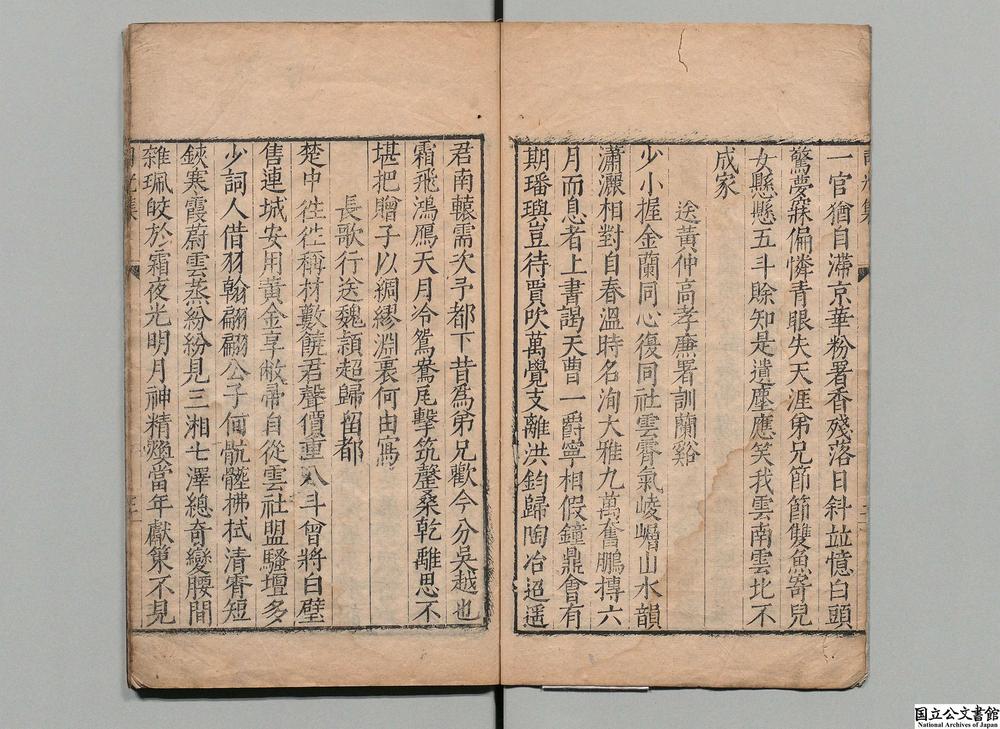 一官猶自滯京華粉署香殘落日斜並憶白頭
驚夢寐偏憐青眼失天涯弟兄節節雙魚寄兒
女懸懸五斗賒知是遺塵應笑我雲南雲北不
成家
送黃仲高孝廉署訓蘭谿
少小握金蘭同心復同社雲霄氣崚嶒山水韻
瀟灑相對自春溫時名洵大雅九萬奮鵬摶六
月而息者上書謁天曹一爵寧相假鐘鼎會有
期璠璵豈待賈吹萬覺支離洪鈞歸陶冶迢遥
君南轅需次予都下昔為弟兄歡今分吳越也
霜飛鴻鴈天月冷鴛鴦瓦擊筑罄桑乾離思不
堪把贈子以綢繆淵裏何由寫
長歌行送魏頴超歸留都
楚中往往稱材藪饒君聲價重八斗曾將白璧
售連城安用黃金享敝帚自從雲社盟騷壇多
少詞人借羽翰翩翩公子何骯髒拂拭清霄短
鋏寒霞蔚雲蒸紛紛見三湘七澤總奇變腰間
雜珮皎於霜夜光明月神精煥當年獻策不見
国立公文書館
National Archives of Japan